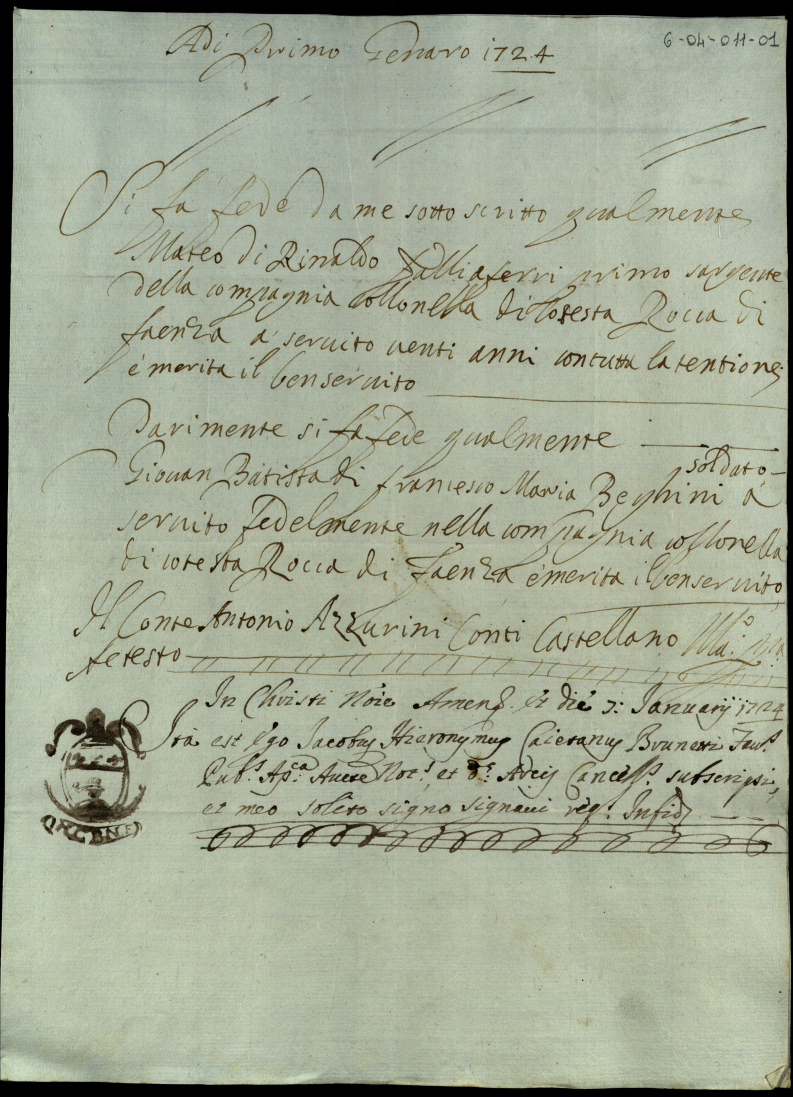 6-04-011-01
Adi Primo Genaro 1724
Si fà fede da me sotto scritto qualmente
Mateo di Rinaldo Talliaferri primo sargente
della compagnia collonella di cotesta Rocca di
faenza à seruito uenti anni con tutta la tentione
è merita il benseruito
Parimente si fà fede qualmente
soldato
Giouan Batista di francesco Maria Beghini à
seruito fedelmente nella compagnia collonella
di cotesta Rocca di Faenza è merita il benseruito
Il Conte Antonio Azzurini Conti Castellano
Atesto
In Christi Nõie Amen. Et die 7: Januarij 1724
Ità est Ego Jacobus Hieronymus Caietanus Brunetti Fau.s
Pub.s Ap.ca Aucte Not.s, et d.e Arcis Canceff.s subscripsi,
et meo solito signo signaui req.s In fid